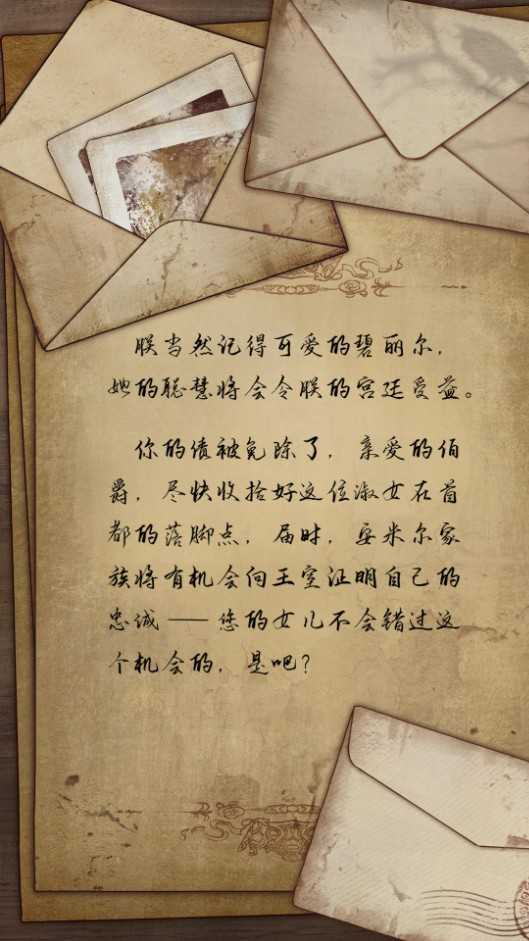 朕当然记得可爱的碧丽尔，
她的聪慧将会令朕的宫廷受益。
你的债被免除了，亲爱的伯
爵，尽快收拾好这位淑女在首
都的落脚点，届时，安米尔家
族将有机会向王室证明自己的
忠诚——您的女儿不会错过这
个机会的，是吧？